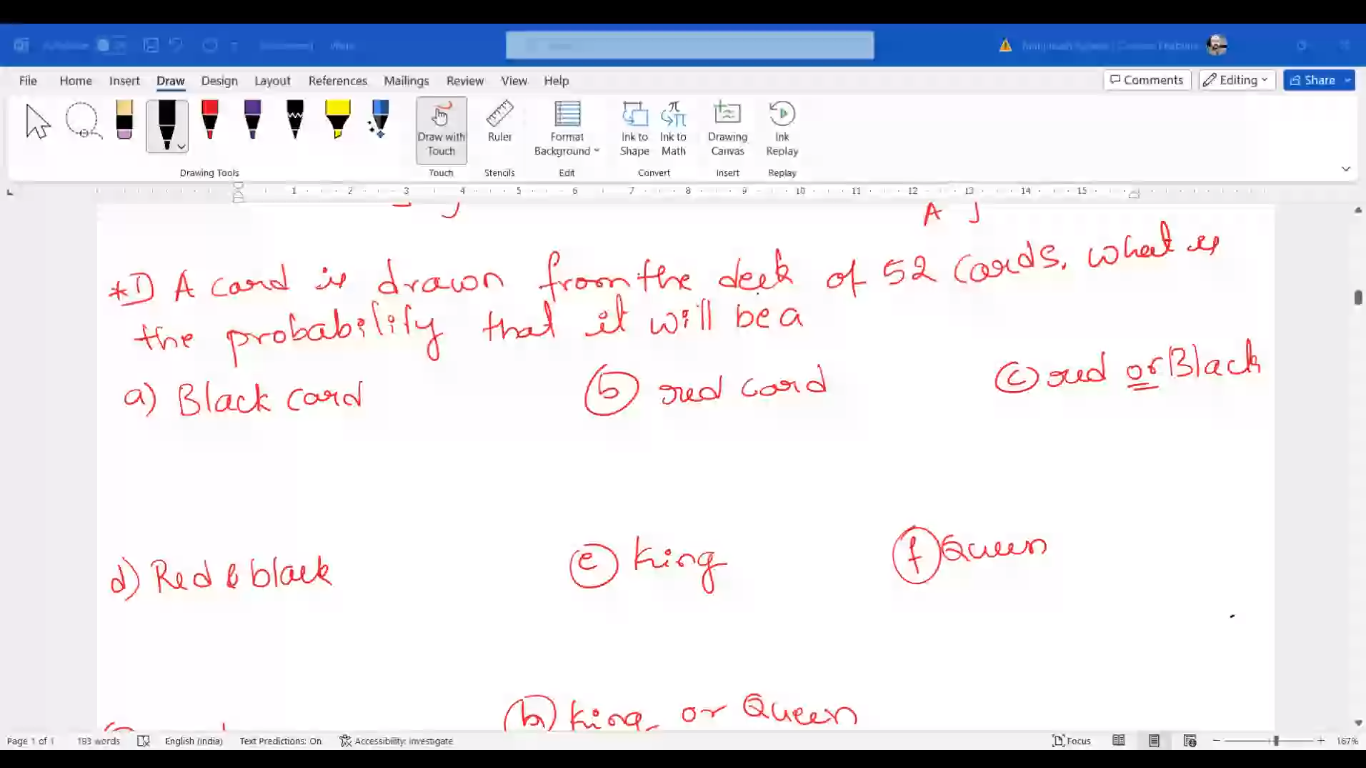 File Home Insert Draw Design Layout References Mailings Review View Help Comments Editing Share
Draw with Touch Ruler Format Background Ink to Shape Ink to Math Drawing Canvas Ink Replay
Drawing Tools Touch Stencils Edit Convert Insert Replay
1 2 3 4 5 6 7 8 9 10 11 12 13 14 15
A J
*1) A card is drawn from the deck of 52 cards. what is
the probability that it will be a
a) Black card (b) red card (c) red or Black
d) Red & black (e) king (f) Queen
(h) king or Queen
Page 1 of 1 193 words English (India) Text Predictions: On Accessibility: Investigate Focus 167%